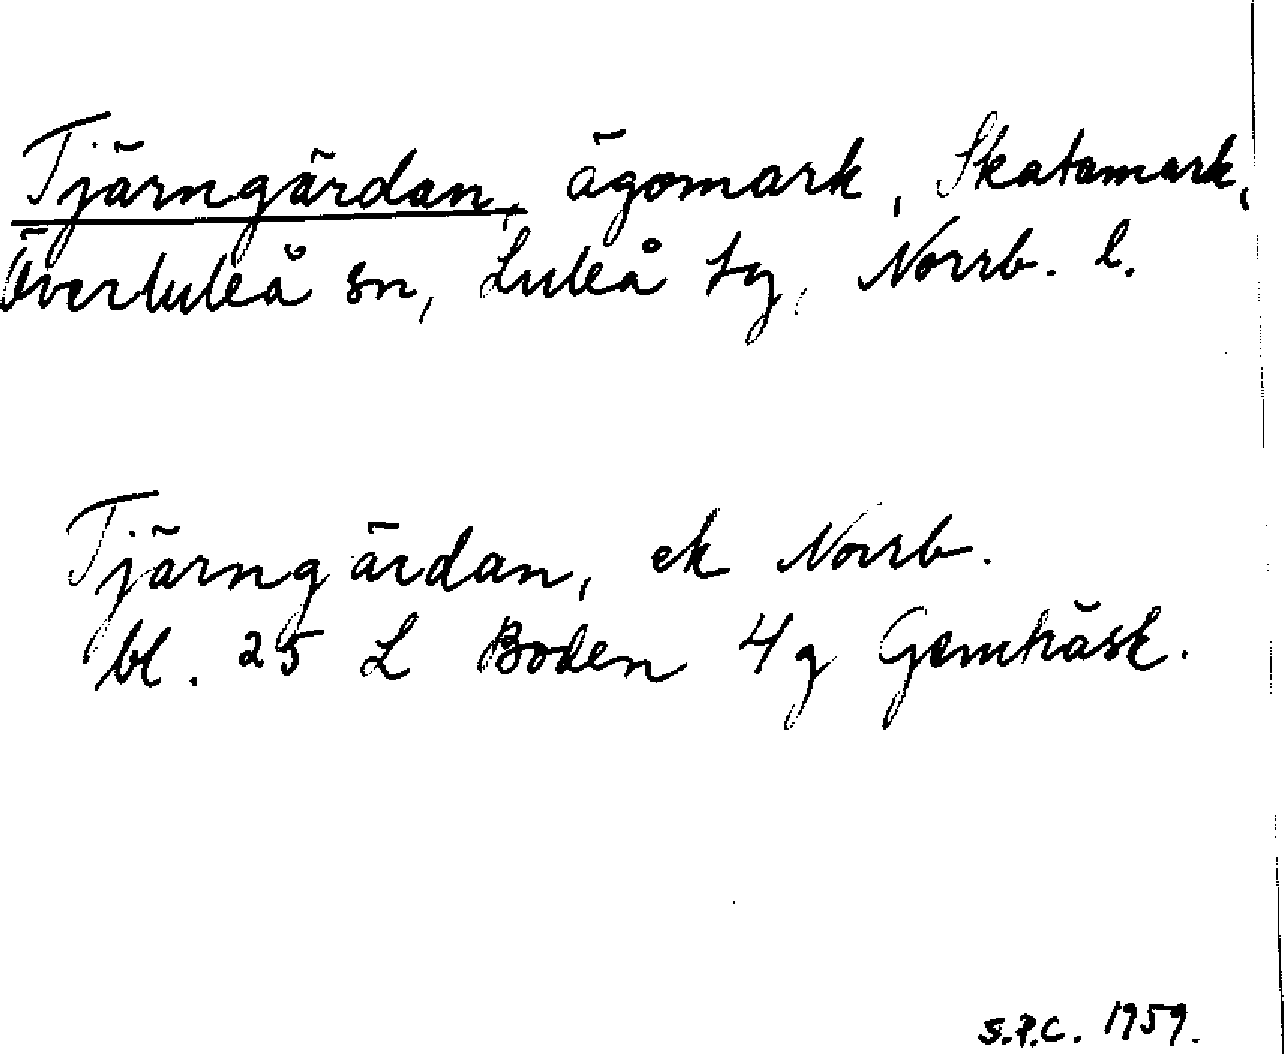 Tjärngärdan, ägomark, Skatamark,
Överluleå sn, Luleå tg, Norrb. l.
Tjärngärdan, ek Norrb.
bl. 25 L Boden 4g Gemträsk.
S.P.C. 1959.